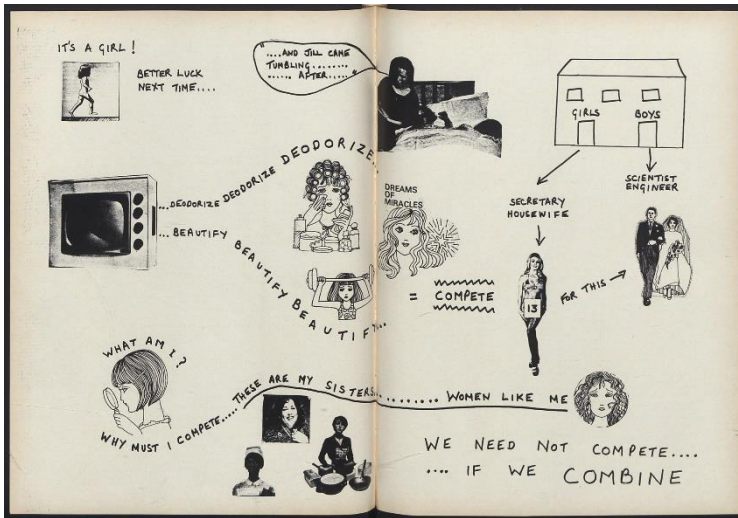 IT'S A GIRL!
BETTER LUCK
NEXT TIME....
"....AND JILL CAME
TUMBLING........
...... AFTER....."
GIRLS
BOYS
SECRETARY
HOUSEWIFE
SCIENTIST
ENGINEER
...DEODORIZE DEODORIZE DEODORIZE..
...BEAUTIFY BEAUTIFY BEAUTIFY...
DREAMS
OF
MIRACLES
= COMPETE
13
FOR THIS
WHAT AM I?
WHY MUST I COMPETE.....THESE ARE MY SISTERS......... WOMEN LIKE ME
WE NEED NOT COMPETE....
.... IF WE COMBINE